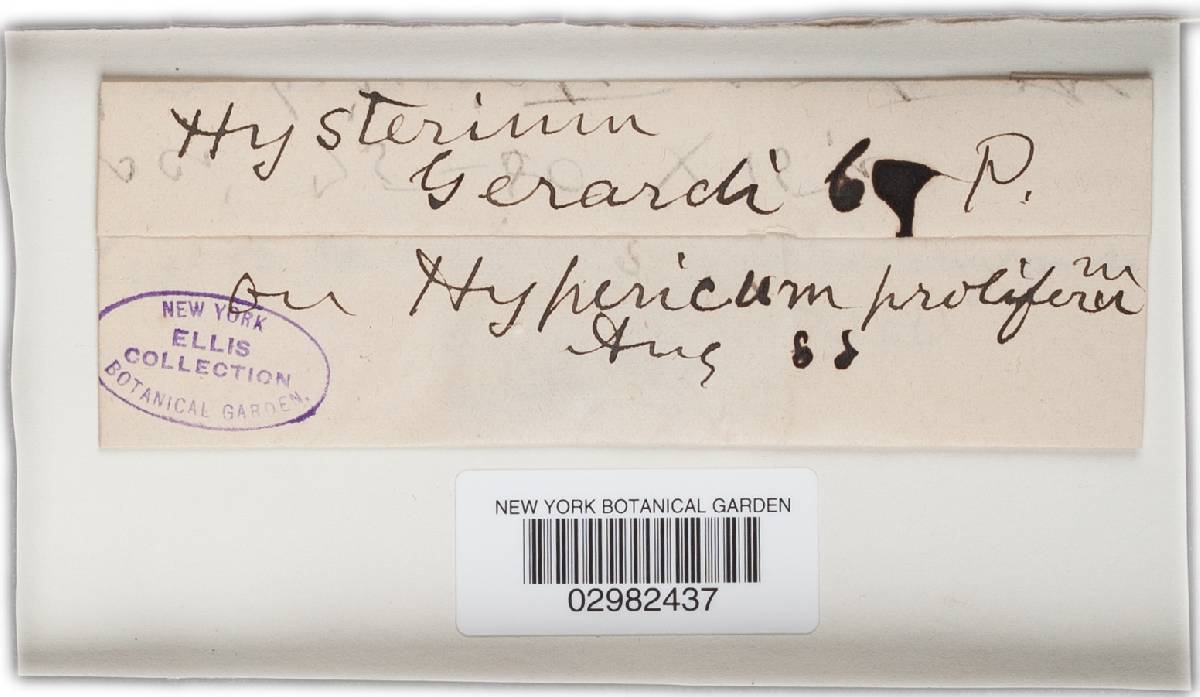 Hysterium
Gerardi P.
on Hypericum prolificum
Aug
NEW YORK
ELLIS
COLLECTION
BOTANICAL GARDEN.
NEW YORK BOTANICAL GARDEN
02982437